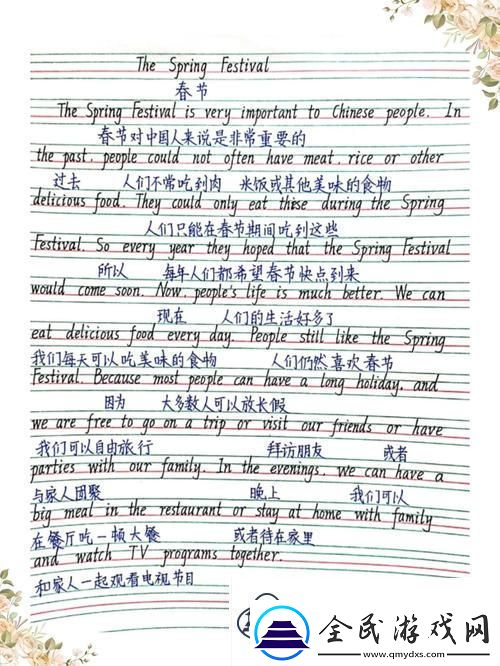 The Spring Festival
春节
The Spring Festival is very important to Chinese people. In
春节对中国人来说是非常重要的
the past, people could not often have meat, rice or other
过去 人们不常吃到肉 米饭或其他美味的食物
delicious food. They could only eat these during the Spring
人们只能在春节期间吃到这些
Festival. So every year they hoped that the Spring Festival
所以 每年人们都希望春节快点到来
would come soon. Now, people's life is much better. We can
现在 人们的生活好多了
eat delicious food every day. People still like the Spring
我们每天可以吃美味的食物 人们仍然喜欢春节
Festival. Because most people can have a long holiday, and
因为 大多数人可以放长假
we are free to go on a trip or visit our friends or have
我们可以自由旅行 拜访朋友 或者
parties with our family. In the evenings, we can have a
与家人团聚 晚上 我们可以
big meal in the restaurant or stay at home with family
在餐厅吃一顿大餐 或者待在家里
and watch TV programs together.
和家人一起观看电视节目
全民游戏网
www.qmydxs.com